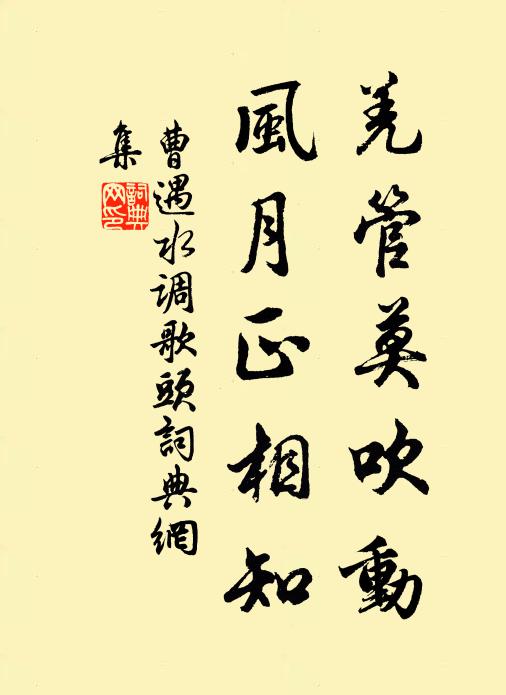 羌管莫吹動
風月正相知
曹遇水调歌頭詞典網
集
詞典網印